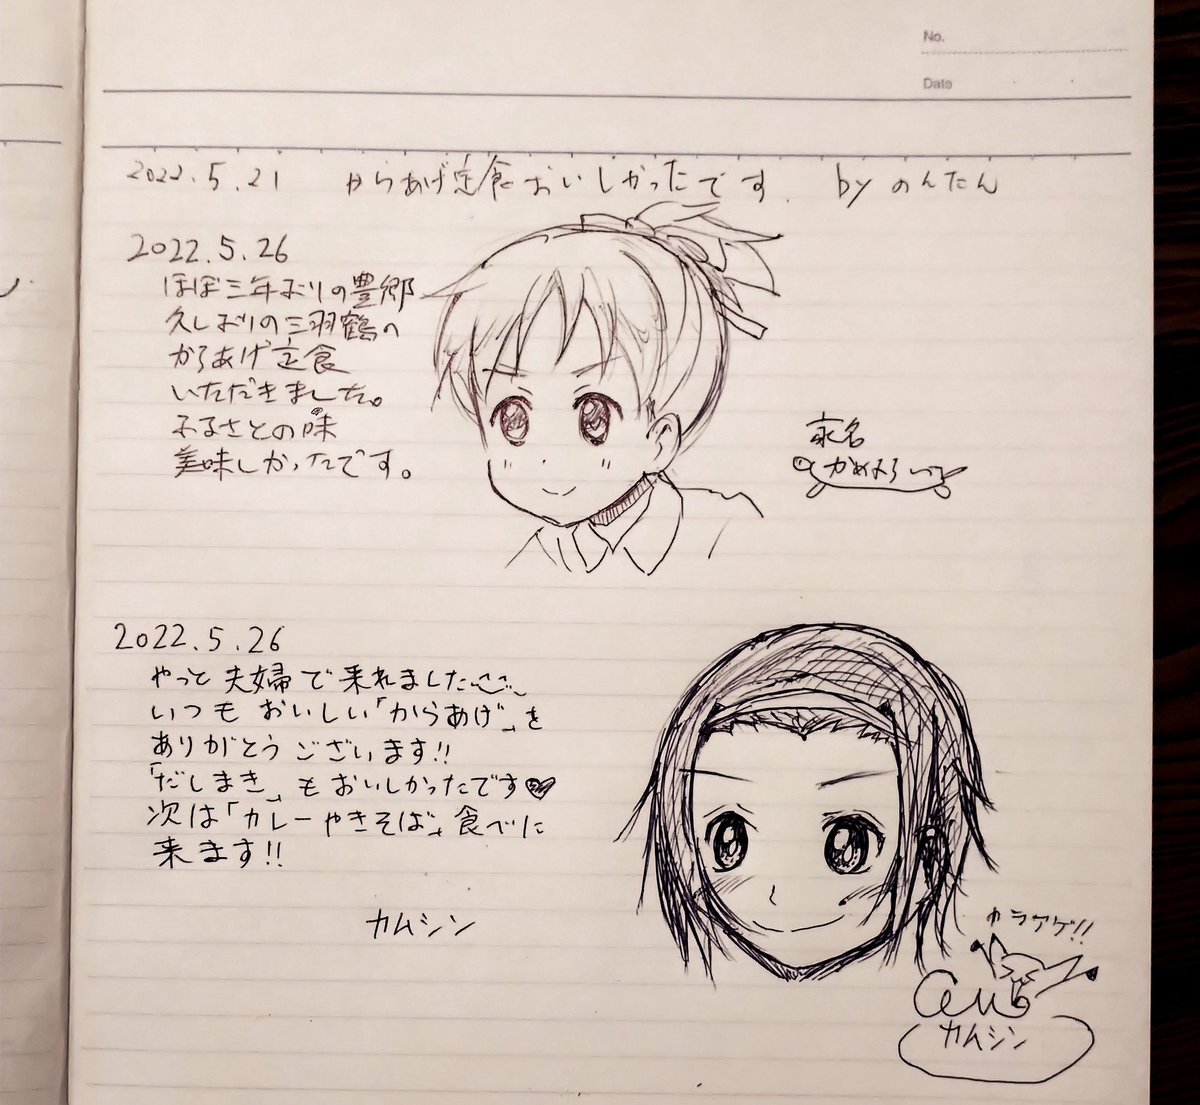 No.
Date
2022.5.21 からあげ定食おいしかったです. by のんたん
2022.5.26
ほぼ三年ぶりの豊郷
久しぶりの三羽鶴の
からあげ定食
いただきました。
ふるさとの味
美味しかったです。
家名
かめよろいっ
2022.5.26
やっと夫婦で来れました
いつもおいしい「からあげ」を
ありがとうございます!!
「だしまき」もおいしかったです♥
次は「カレーやきそば」食べに
来ます!!
カムシン
カラアゲ!!
カムシン